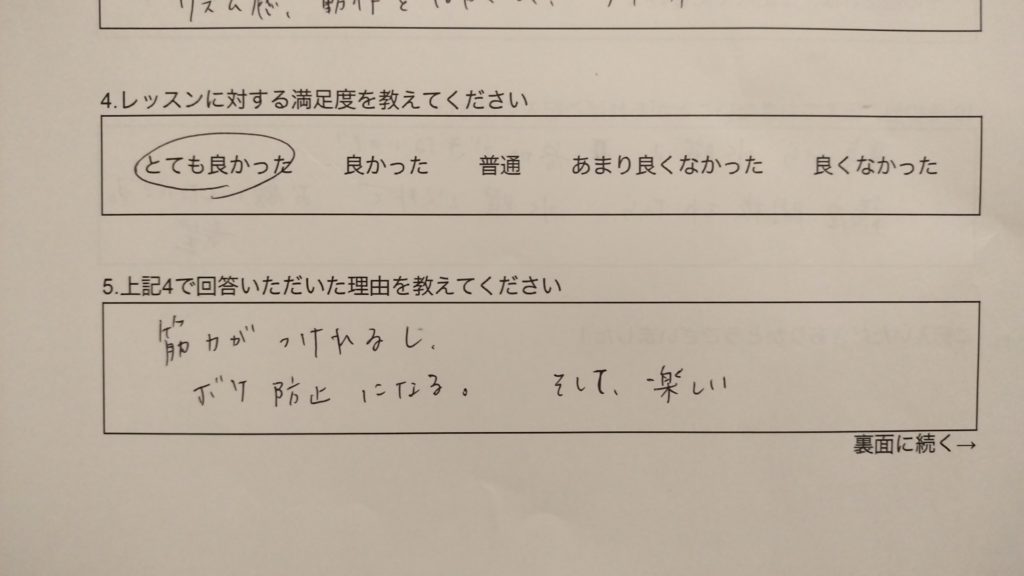 リズム感、動作を
4.レッスンに対する満足度を教えてください
とても良かった 良かった 普通 あまり良くなかった 良くなかった
5.上記4で回答いただいた理由を教えてください
筋力がつけれるし、
ボケ防止になる。 そして、楽しい
裏面に続く→